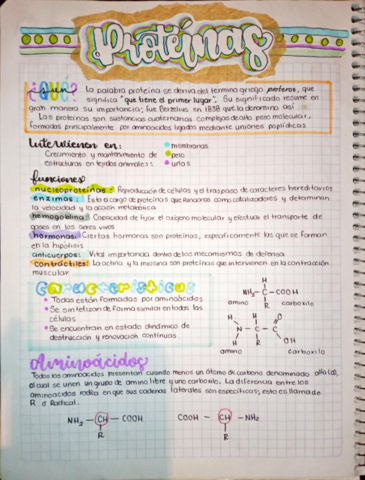 Proteínas
¿Qué son? La palabra proteína se deriva del término griego proteros, que
significa "que tiene el primer lugar". Su significado resume en
gran manera su importancia; fue Berzelius en 1838 que la denominó así
Las proteínas son sustancias cuaternarias complejas de alto peso molecular,
formadas principalmente por aminoácidos ligados mediante uniones peptídicas
Intervienen en:
Crecimiento y mantenimiento de
estructuras en tejidos animales:
membranas
pelo
uñas
funciones
nucleoproteínas: Reproducción de células y el traspaso de caracteres hereditarios
enzimas: Esta a cargo de proteínas que funcionan como catalizadores y determinan
la velocidad y la acción metabólica
hemoglobina: Capacidad de fijar el oxígeno molecular y efectuar el transporte de
gases en los seres vivos
hormonas: Ciertas hormonas son proteínas, específicamente las que se forman
en la hipófisis
anticuerpos: Vital importancia dentro de los mecanismos de defensa
contráctiles: La actina y la miosina son proteínas que intervienen en la contracción
muscular
Características
Todas están formadas por aminoácidos
Se sintetizan de forma similar en todas las
células
Se encuentran en estado dinámico de
destrucción y renovación continuas
H
NH₂ - C - COOH
amino R carboxilo
H H O
N - C - C
H R OH
amino carboxilo
Aminoácidos
Todos los aminoácidos presentan cuando menos un átomo de carbono denominado alfa (α),
al cual se unen un grupo de amino libre y uno carboxilo. La diferencia entre los
aminoácidos radica en que sus cadenas laterales son específicas; esto es llama de
R o Radical.
NH₂ - CH - COOH
R
COOH - CH - NH₂
R